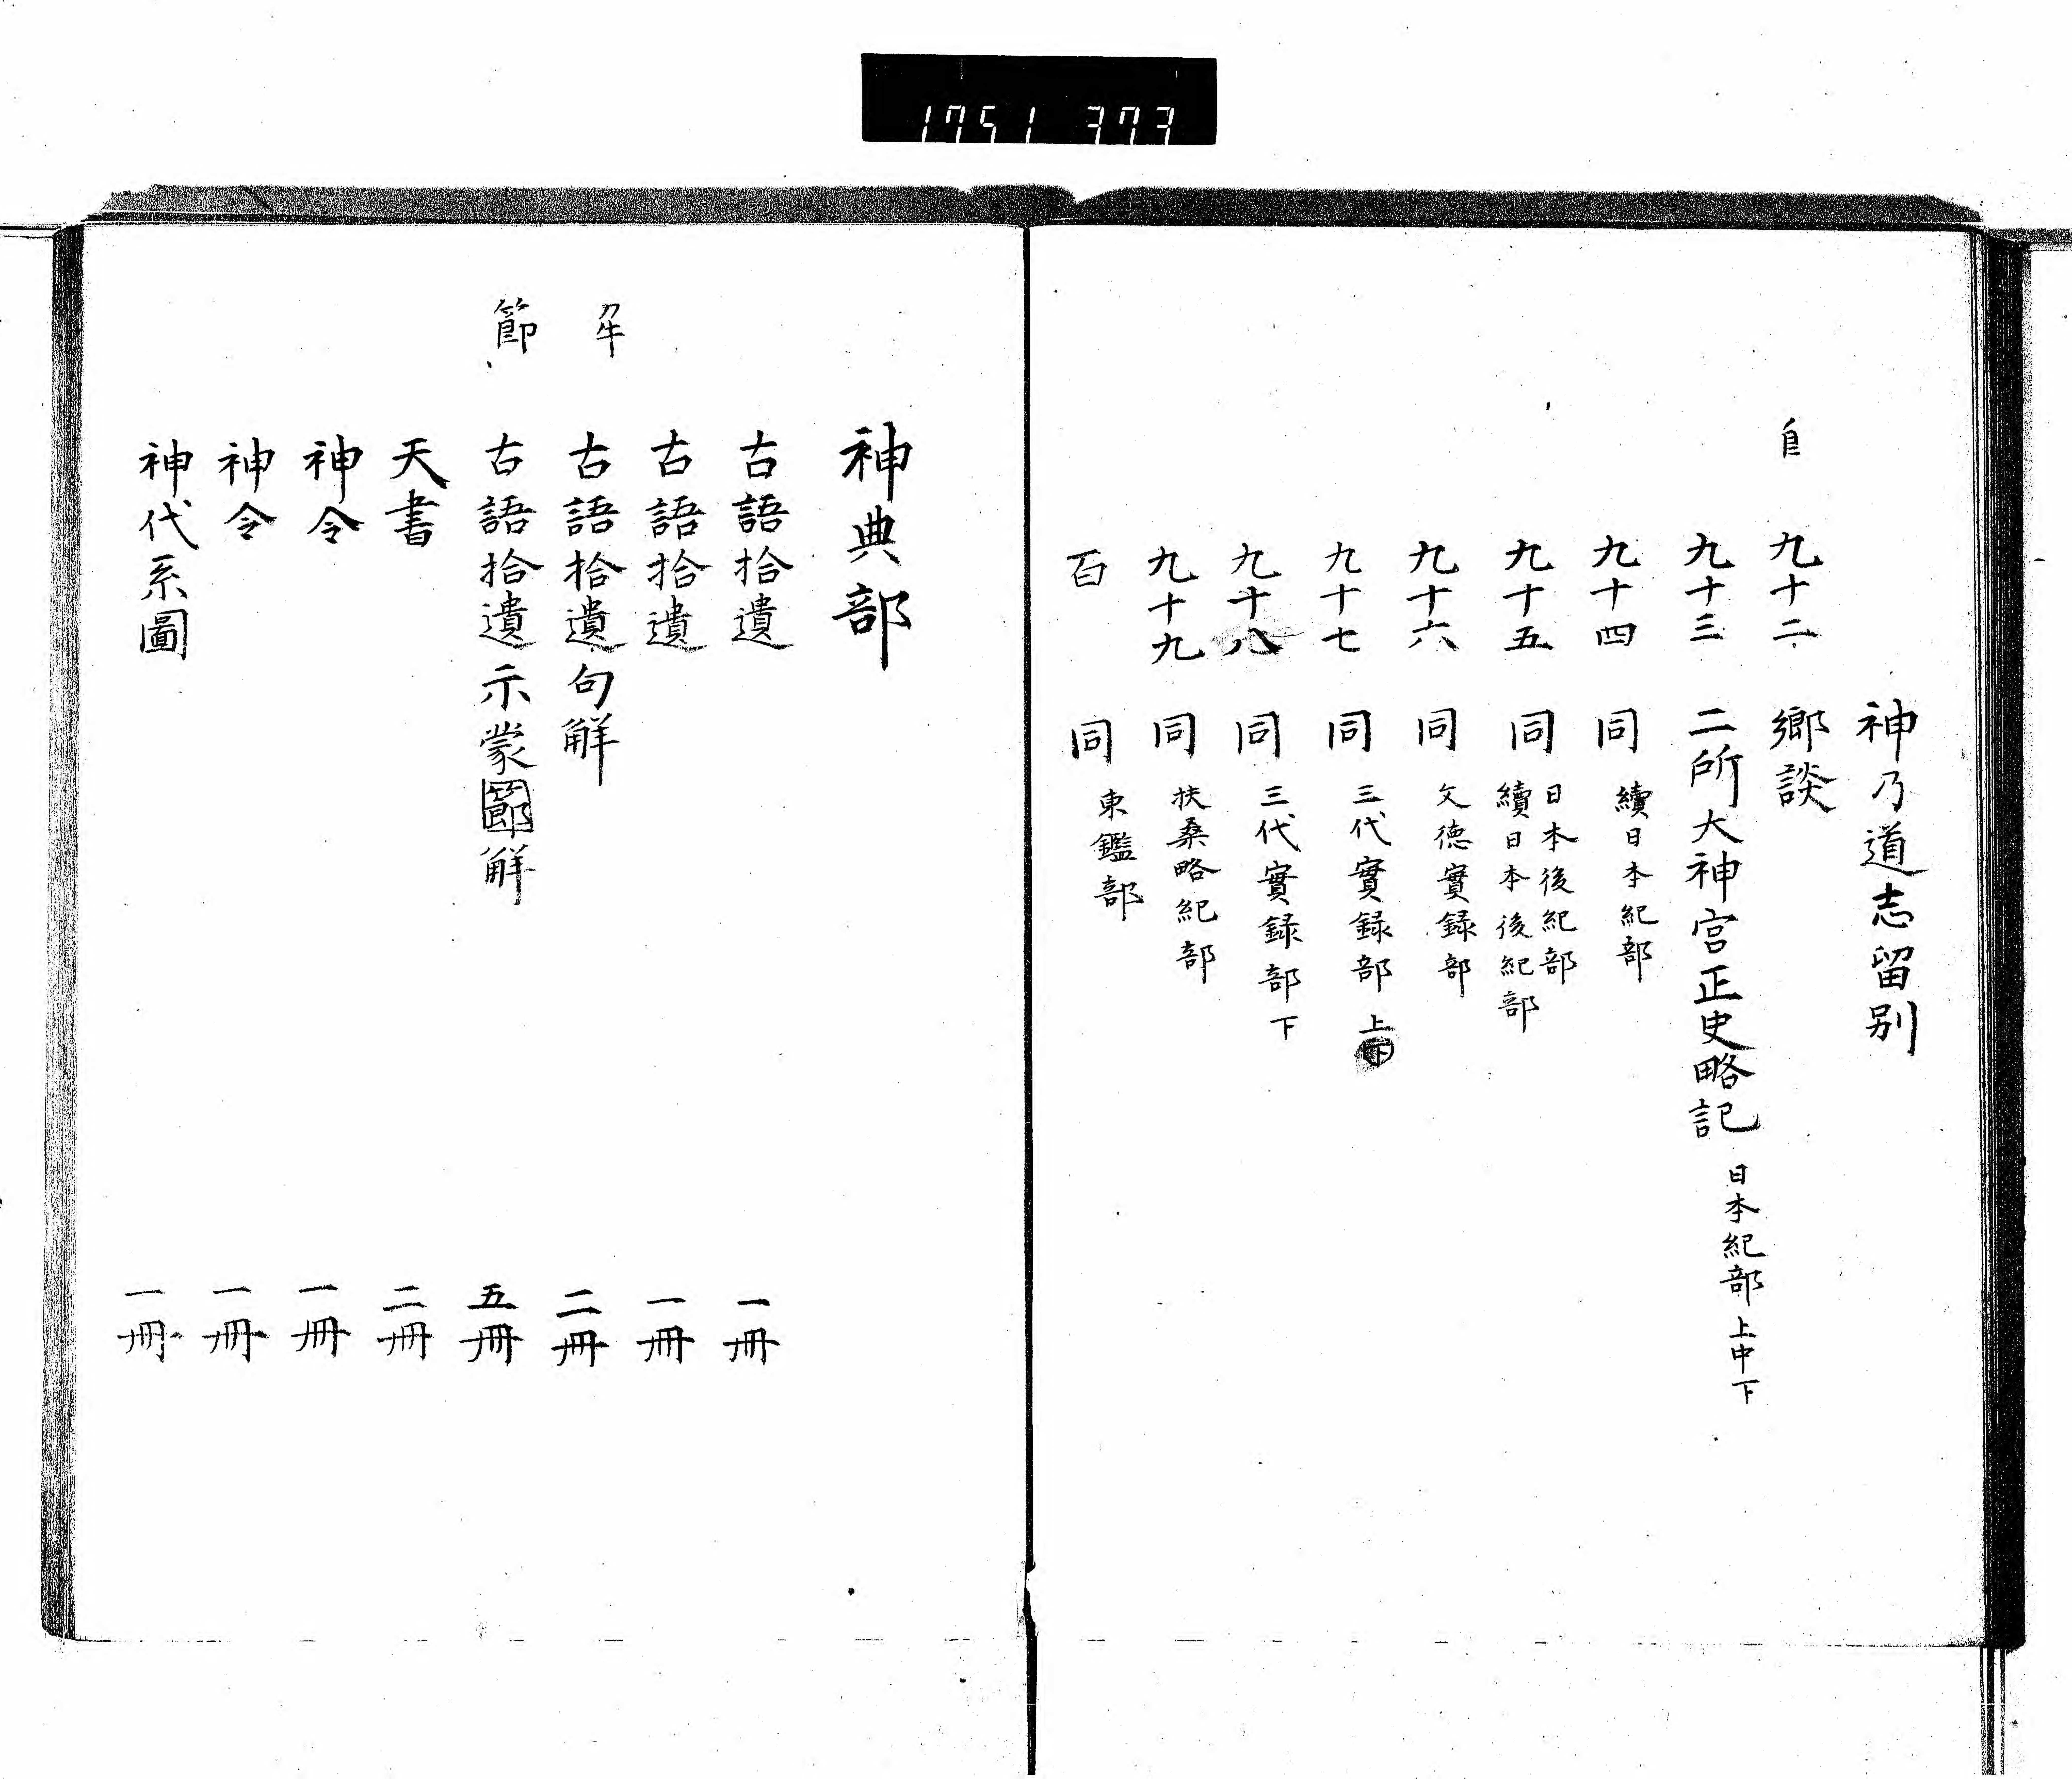 1751 373
神乃道志留別
自 九十二 鄉談
九十三 二所大神宮正史略記 日本紀部上中下
九十四 同 續日本紀部
九十五 同 日本後紀部
續日本後紀部
九十六 同 文德實録部
九十七 同 三代實録部上下
九十八 同 三代實録部下
九十九 同 扶桑略紀部
百 同 東鑑部
神典部
古語拾遺 一冊
古語拾遺 一冊
古語拾遺句解 二冊
節 古語拾遺示蒙節解 五冊
天書 二冊
神令 一冊
神令 一冊
神代系圖 一冊